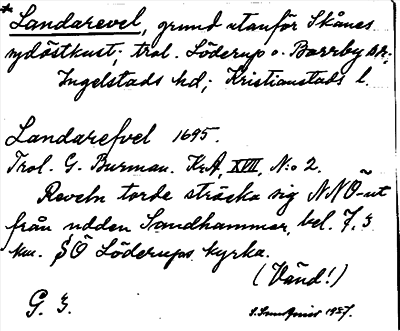 * Landarevel, grund utanför Skånes
sydöstkust; trol. Löderup o. Borrby snr;
Ingelstads hd; Kristianstads l.
Landarefvel 1695.
Trol. G. Burman. KrA, XVII, N:o 2.
Reveln torde sträcka sig NNÖ-ut
från udden Sandhammar, bel. 7.3
km. SÖ Löderups kyrka.
(Vänd!)
G. 3.
1927.